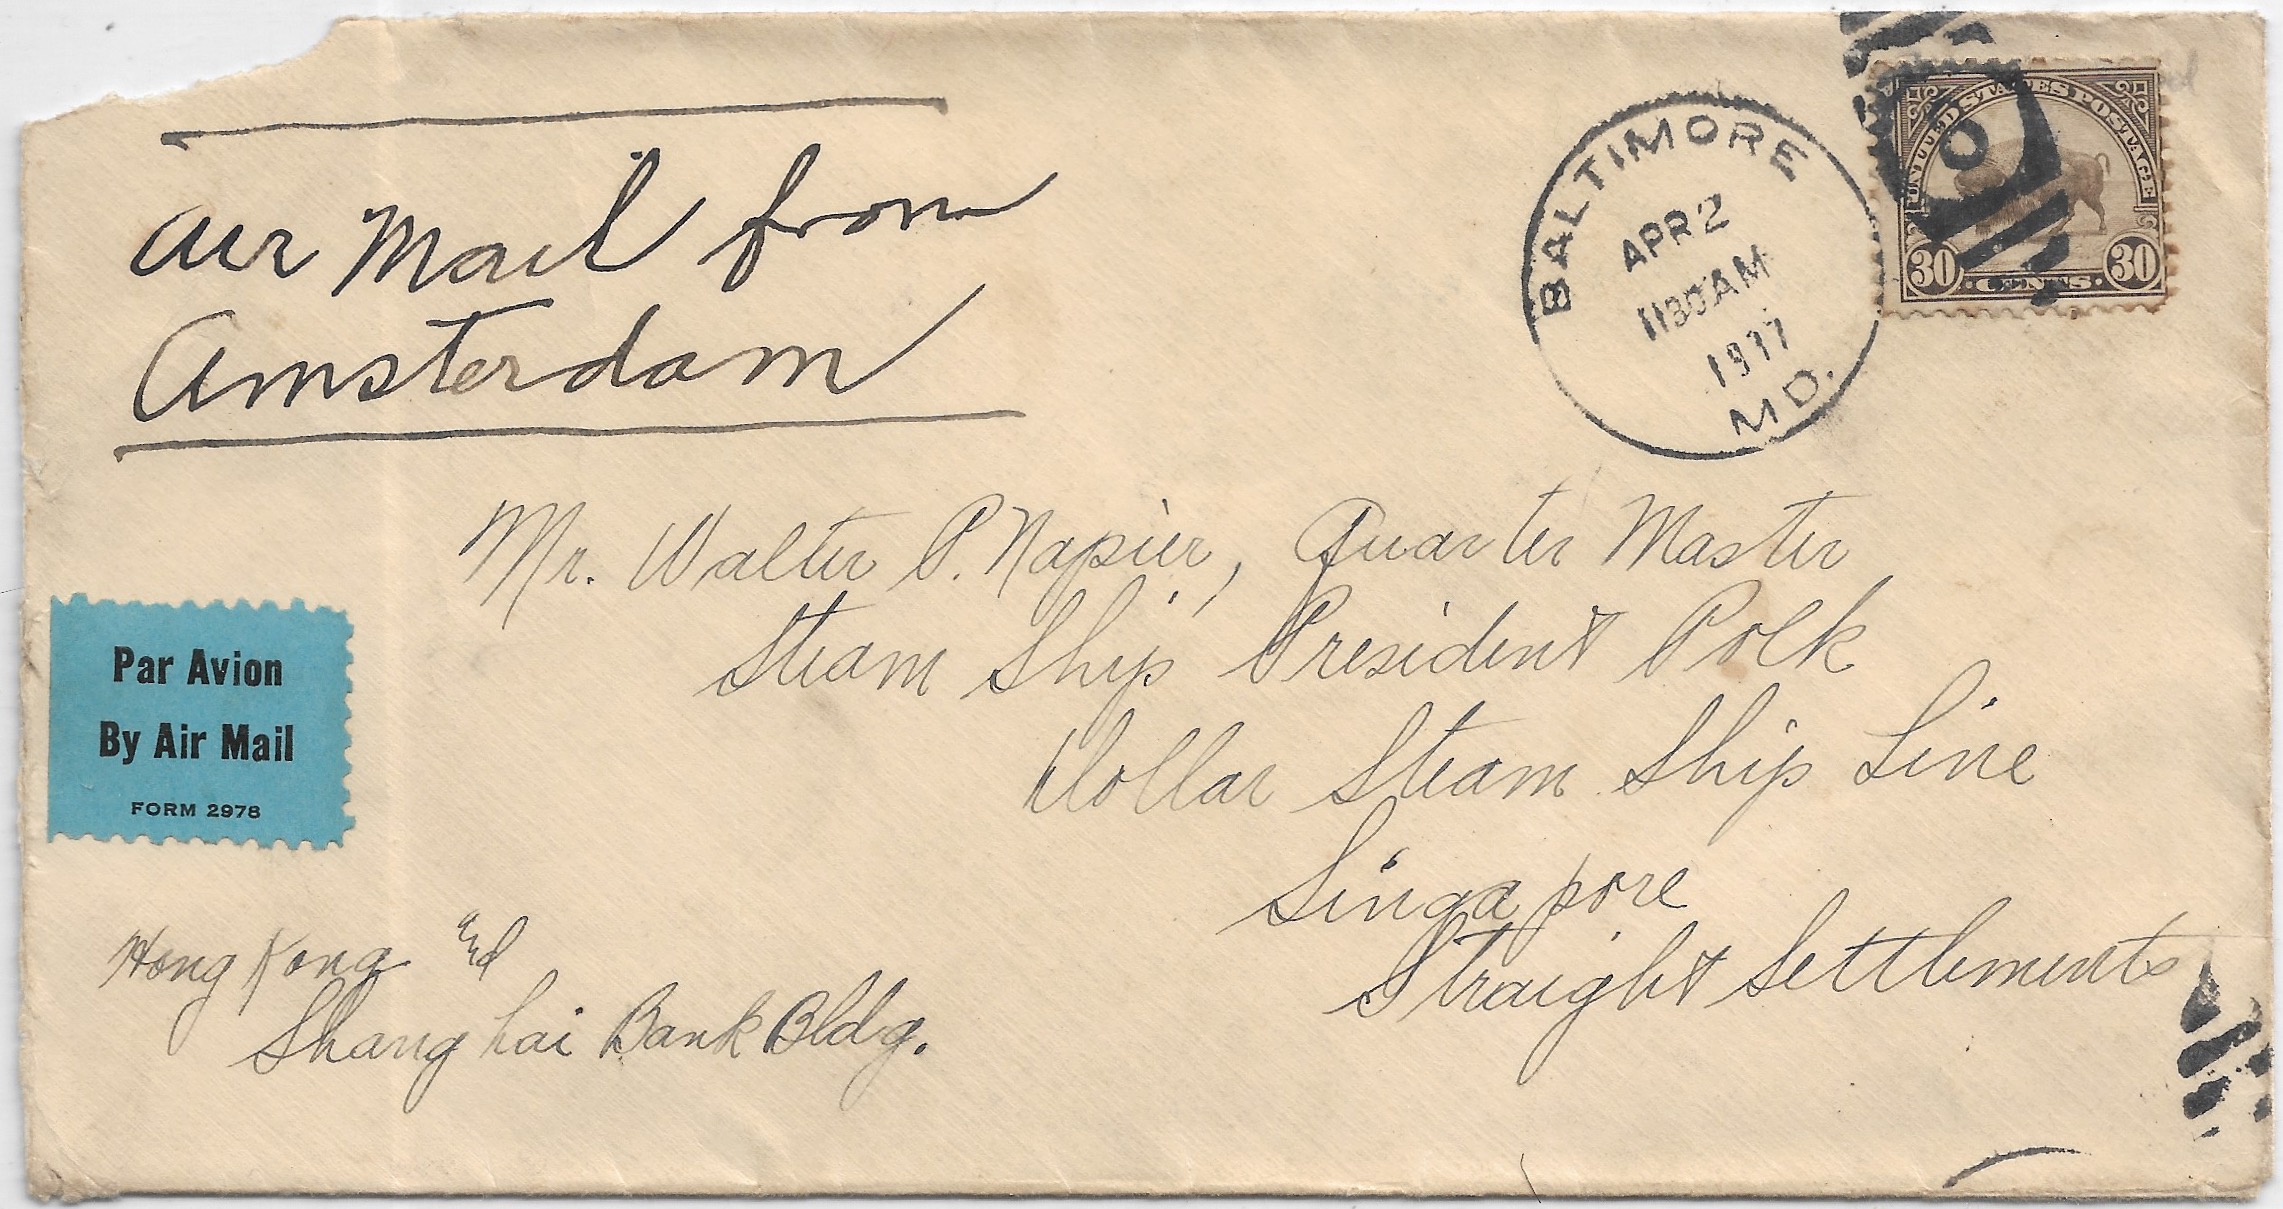 Air Mail from
Amsterdam
BALTIMORE
APR 2
1130 AM
19
MD.
UNITED STATES POSTAGE
30 CENTS 30
Mr. Walter P. Napier, Quarter Master
Steam Ship President Polk
Dollar Steam Ship Line
Singapore
Straight Settlements
Par Avion
By Air Mail
FORM 2978
Hong Kong and
Shanghai Bank Bldg.